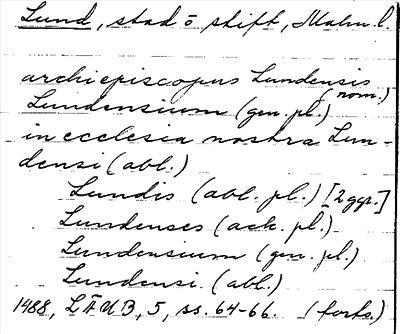 Lund, stad o stift, Malm. l.
archiepiscopus Lundensis
(nom.)
Lundensium (gen. pl.)
in ecclesia nostra Lun-
densi (abl.)
Lundis (abl. pl.) [2 ggr.]
Lundenses (ack. pl.)
Lundensium (gen. pl.)
Lundensi (abl.)
1488, LÄUB, 5, ss. 64-66. (forts.)